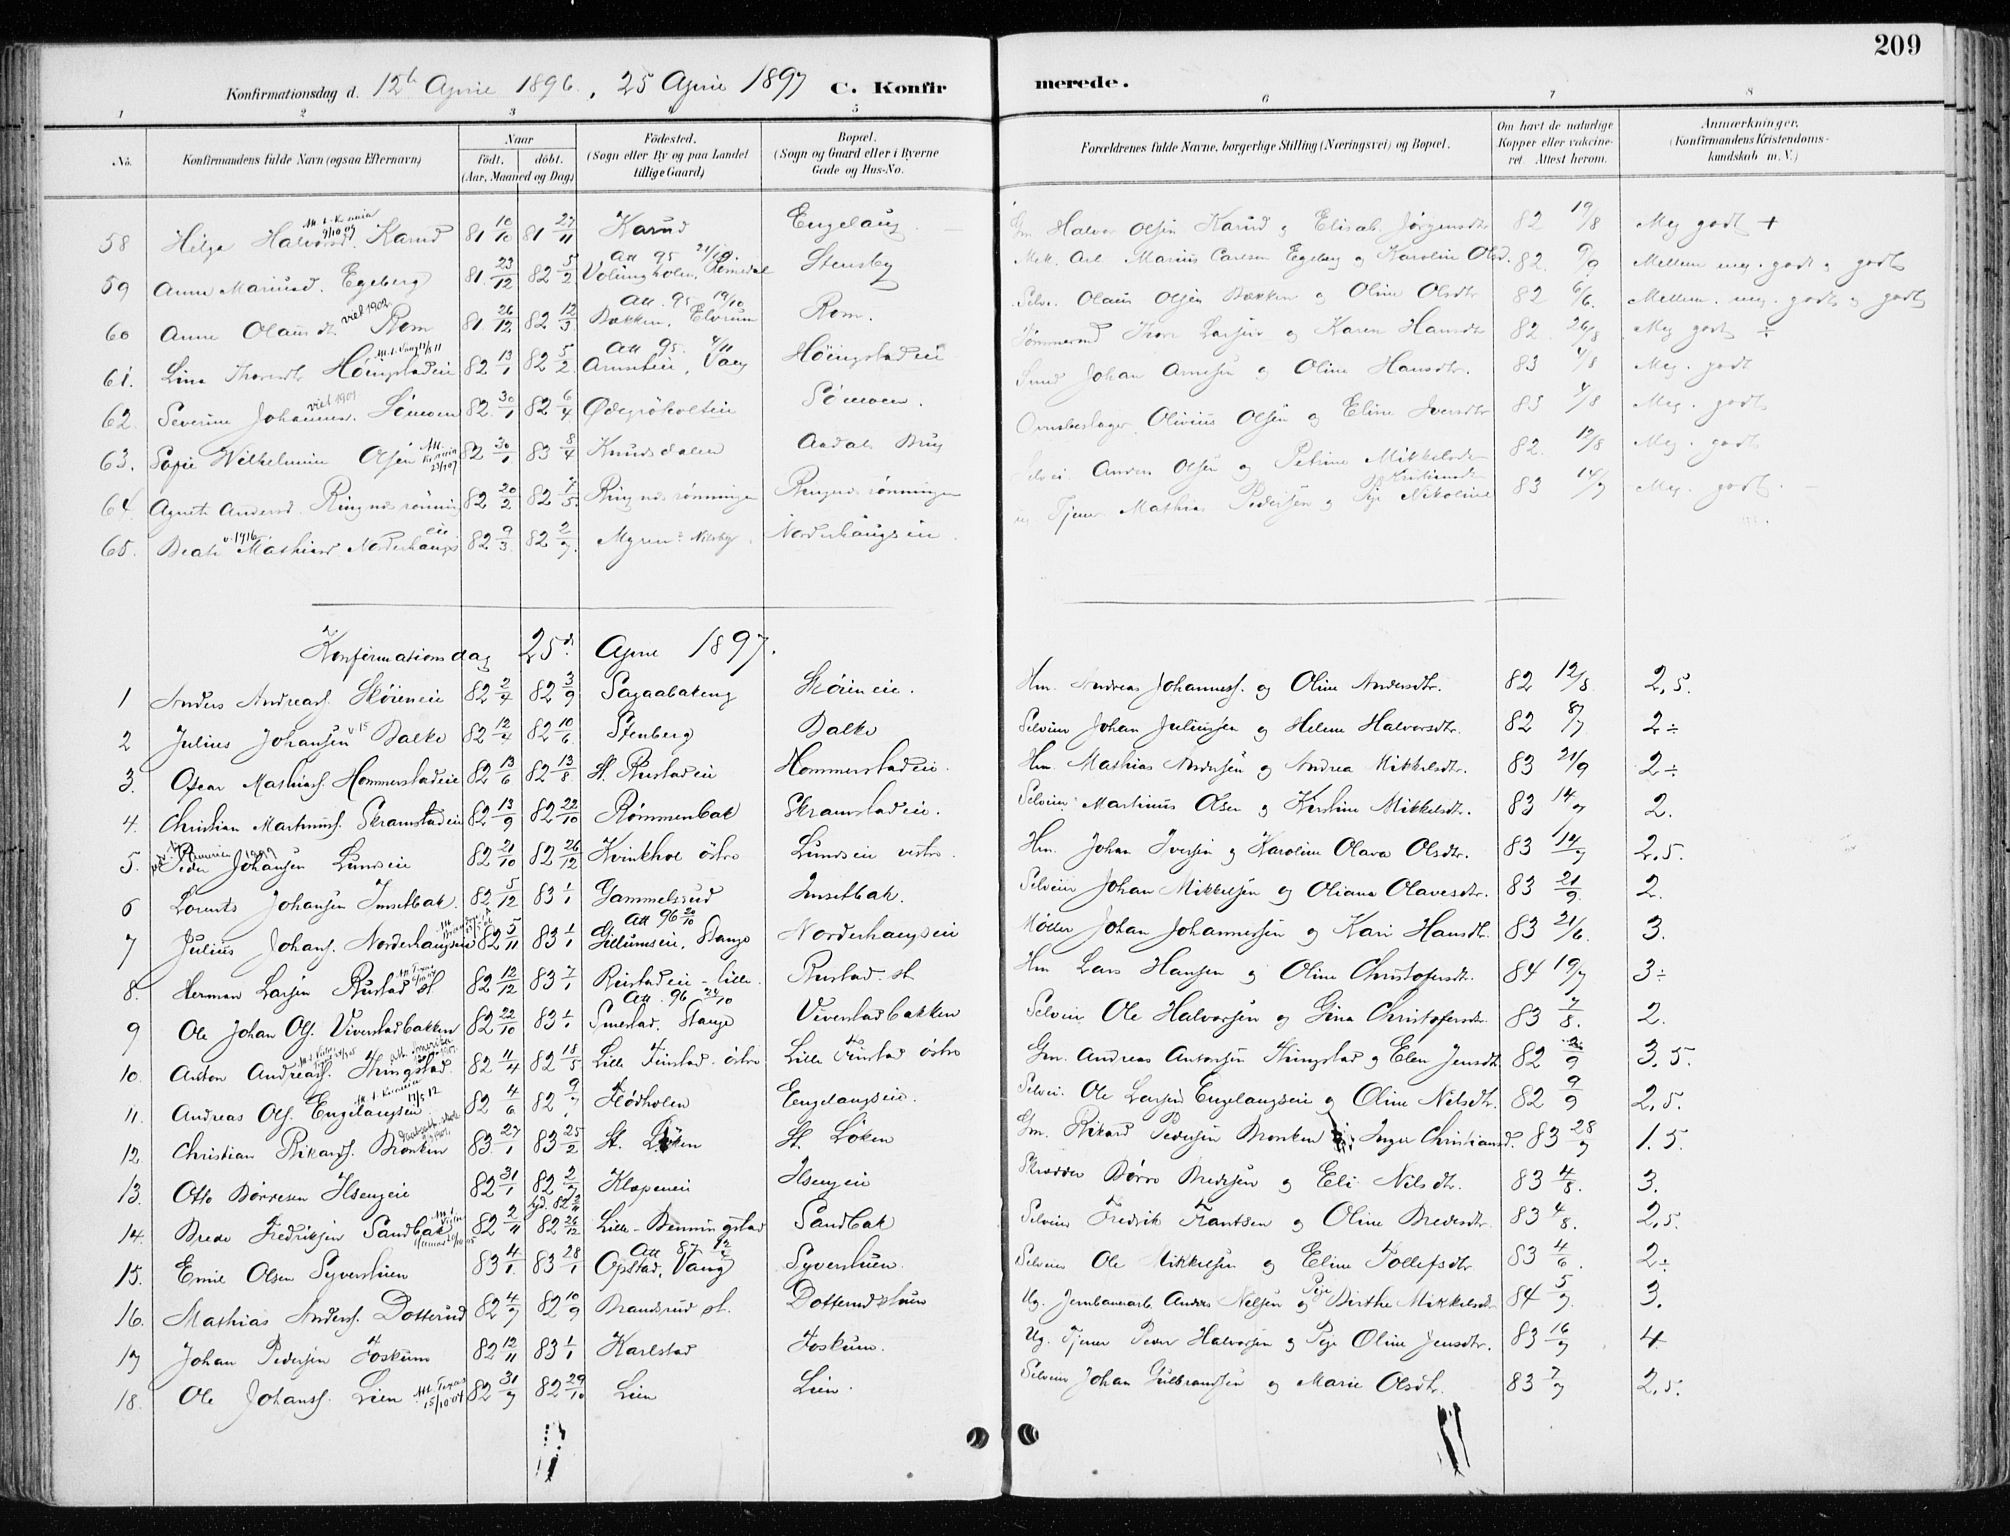 209
Konfirmationsdag d. 12te April 1896, 25 April 1897 C. Konfirmerede.
1 2 3 4 5 6 7 8
No. Konfirmandens fulde Navn (ogsaa Efternavn) Naar født, døbt. (Aar, Maaned og Dag) Födested. (Sogn eller By og paa Landet tillige Gaard) Bopæl. (Sogn og Gaard eller i Byerne Gade og Hus-No. Forældrenes fulde Navne, borgerlige Stilling (Næringsvei) og Bopæl. Om havt de naturlige Kopper eller vaccineret. Attest herom. Anmærkninger. (Konfirmandens Kristendomskundskab m. V.)
58 Helga Halvorsd. Karud 81 10/10 81 27/11 Karud Engelaug Gm. Halvor Olsen Karud og Elisab. Jörgensdtr 82 19/8 Meg godt +
59 Anne Mariusd. Egeberg 81 23/12 82 5/2 Romedal Stensby Marius Carlsen Egeberg og Karoline Olsd. 82 9/9 Mellem meg. godt og godt
60 Anne Olausdt. viet 1902 Rom 81 26/12 82 12/3 Att. 95 19/10 Bækken, Elvrum Rom. Selve. Olaus Olsen Bækken og Oline Olsdtr 82 6/6. Mellem. meg. godt og godt
61. Lina Thoresdt Höingstadeie 82 13/1 82 5/2 Att 95 Arnsteie, Vang Höingstadeie Tömmermd Thore Larsen og Karen Hansdt 82. 26/8 Meg godt ÷
62. Severine Johannesd. Sömoen 82. 30/1 82 6/4 Sömoen. Smed Johan Arnesen og Oline Hansdtr. 83 4/8 Meg. godt
63. Sofie Wilhelmine Olsen 82 30/1 83 8/4 Knudsdalen Aadals Brug Ovnsbeslager Olivius Olsen og Eline Iversdtr 83 4/8 Meg. godt
64. Agnete Andersd. Ringnesrönning 82 20/2 82 7/5. Ringnesrønningen Ringnesrønningen Selvei. Anders Olsen og Petrine Mikkelsdtr 82. 12/8 Meg. godt
65. Beate v. 1916 Mathiasd Norderhaugseie 82 9/3 82 2/7. Myren Norderhaugseie. ug Tjener Mathias Pedersen og Pige Nikoline Kristiansdtr 83 14/7 Meg. godt.
Konfirmationsdag 25de April 1897.
1 Anders Andreass. Skøieneie 82 2/4 82 3/9 Sagaabakeng Skøieneie. Hm. Andreas Johanness. og Oline Andersdtr. 82 12/8 2,5.
2 Julius Johansen Balke 82 12/4 82 10/6 Stenberg Balke Selveier Johan Juliussen og Helene Halvorsdtr. 82 8/7 2÷
3. Oscar Mathiass. Hommerstadeie 82 13/6 82 13/8 St. Rustadeie Hommerstadeie. Hm. Mathias Andersen og Andrea Mikkelsdtr. 83 21/9 2÷
4. Christian Martinuss. Skramstadeie 82 13/9 82 22/10 Rømmenbak Skramstadeie. Selveier Martinus Olsen og Kirstine Mikkelsdtr 83 14/7 2.
5. Peder Johansen Lundseie 82 21/10 82 26/12 Kvinkhol östre Lundseie vestre. Hm. Johan Iversen og Karoline Olava Olsdtr. 83 14/7 2,5.
6 Lorents Johansen Imsetbak. 82 5/12 83 1/1 Gammelsrud Imsetbak. Selveier Johan Mikkelsen og Oliana Olavesdtr. 83 21/9 2.
7 Julius Johans. Norderhaugseie 82 5/11 83 1/1 Att 96 20/10 Gillundseie, Stange Norderhaugseie Møller Johan Johannessen og Kari Hansdtr. 83 21/6. 3.
8. Herman Larsen Rustad st 82 12/12 83 7/1 Rustadeie - lille. Rustad st. Hm Lars Hansen og Oline Christofersdtr. 84 19/7 3÷
9 Ole Johan Ols. Viverstadbakken 82 22/10 83 1/1 Att. 96 24/10 Smestad, Stange Viverstadbakken Selveier Ole Halvorsen og Gina Christofersdtr 83 7/8. 2.
10. Anton Andreass. Hingstad 82 11/4 82 18/5 Lille Finstad östre Lille Finstad östre Gm. Andreas Antonsen Hingstad og Elen Jensdtr 82 9 3,5.
11. Andreas Ols. Engelaugseie 82 4/6 82 9/7 Flødholen Engelaugseie. Selvei. Ole Larsen Engelaugseie og Oline Nilsdtr. 82 9/9 2,5.
12. Christian Rikards. Bronken 83. 27/1 83 25/2 St. Løken St. Løken Gm. Rikard Pedersen Bronken og Inger Christiansd. 83 28/7 1.5.
13. Otto Børresen Ilsengeie 82 31/1 82 2/7 Klopeneie Ilsengeie Skrædder Børre Bredesen og Eli Nilsdtr. 83 4/8. 3.
14. Brede Fredriksen Sandbak 82 2/11 82 26/12 Lille-Benningstad Sandbak Selveier Fredrik Frantsen og Oline Bredesdtr. 83 4/8. 2,5.
15. Emil Olsen Syverstuen 83 4/1. 83 28/1 Att 87 12/4 Opstad, Vang Syverstuen. Selveier Ole Mikkelsen og Eline Tollefsdtr 83 4/6. 2÷
16. Mathias Anderss. Dotterud 82 4/7 82 10/9 Brandsrud st. Dotterudstuen Ug. Jernbanearb. Anders Nelsen og Pige Birthe Mikkelsdtr 84 5/7. 3.
17 Johan Pedersen Foskum 82 12/11 83 1/1 Karlstad Foskum. Ug. Tjener Peder Halvorsen og Pige Oline Jensdtr. 83 16/7 4.
18. Ole Johanss. Lien Att. Texas 15/10 04 82 31/7 82 29/10 Lien Lien. Selveier Johan Gulbrandsen og Marie Olsdtr. 83 7/7 2,5.